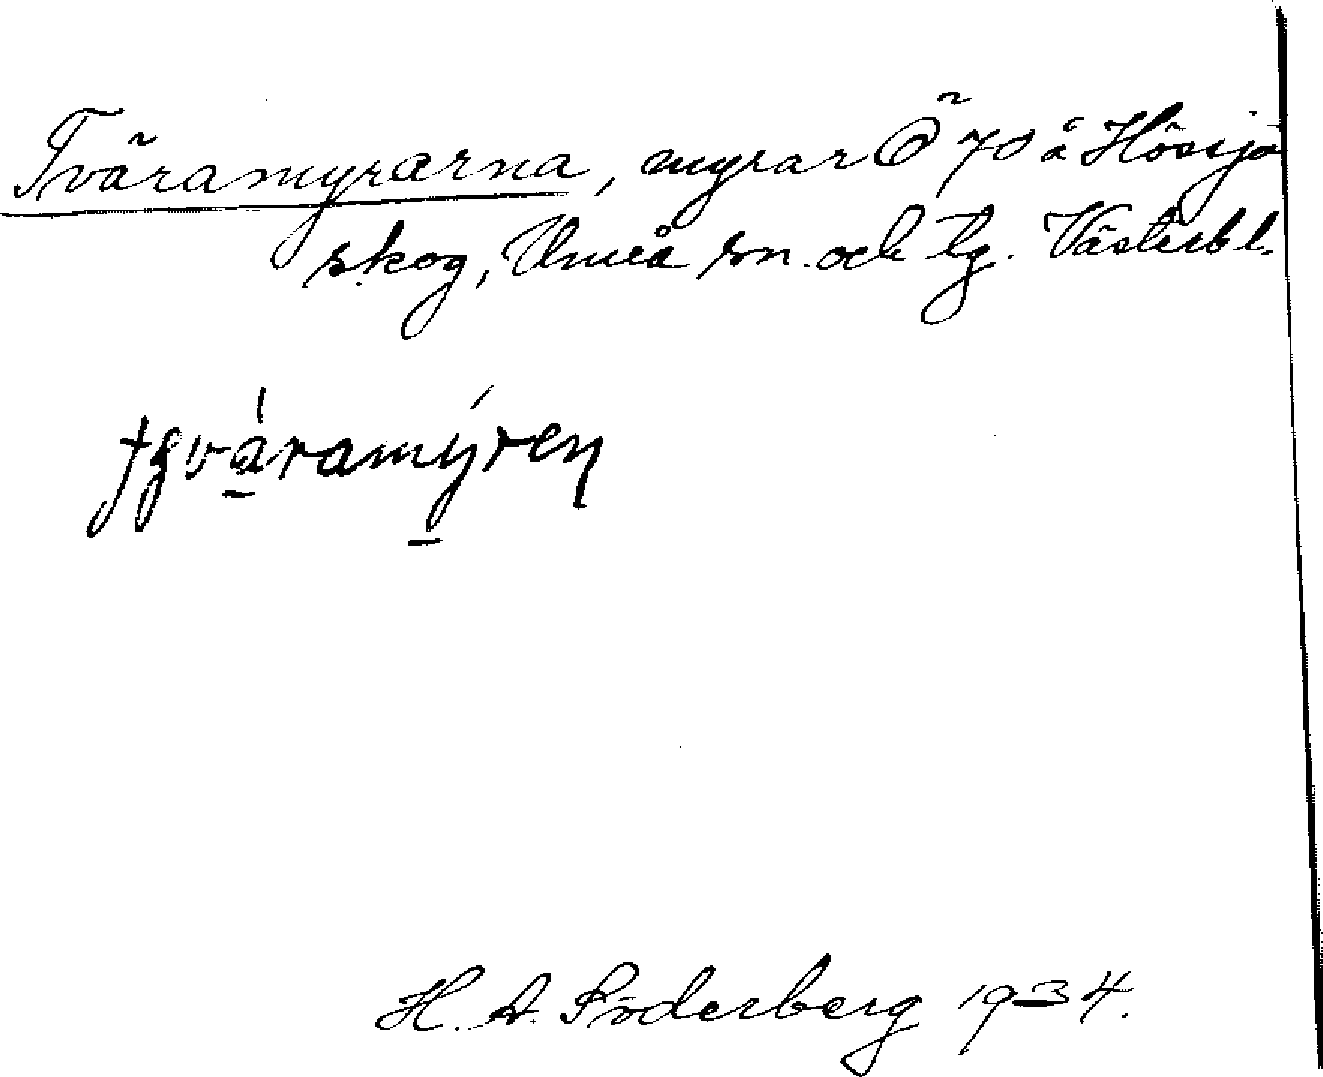 Tväramyrarna, myrar Ö 70 å Hössjö
skog, Umeå sn. och tg. Västerbl.
H. A. Söderberg 1934.